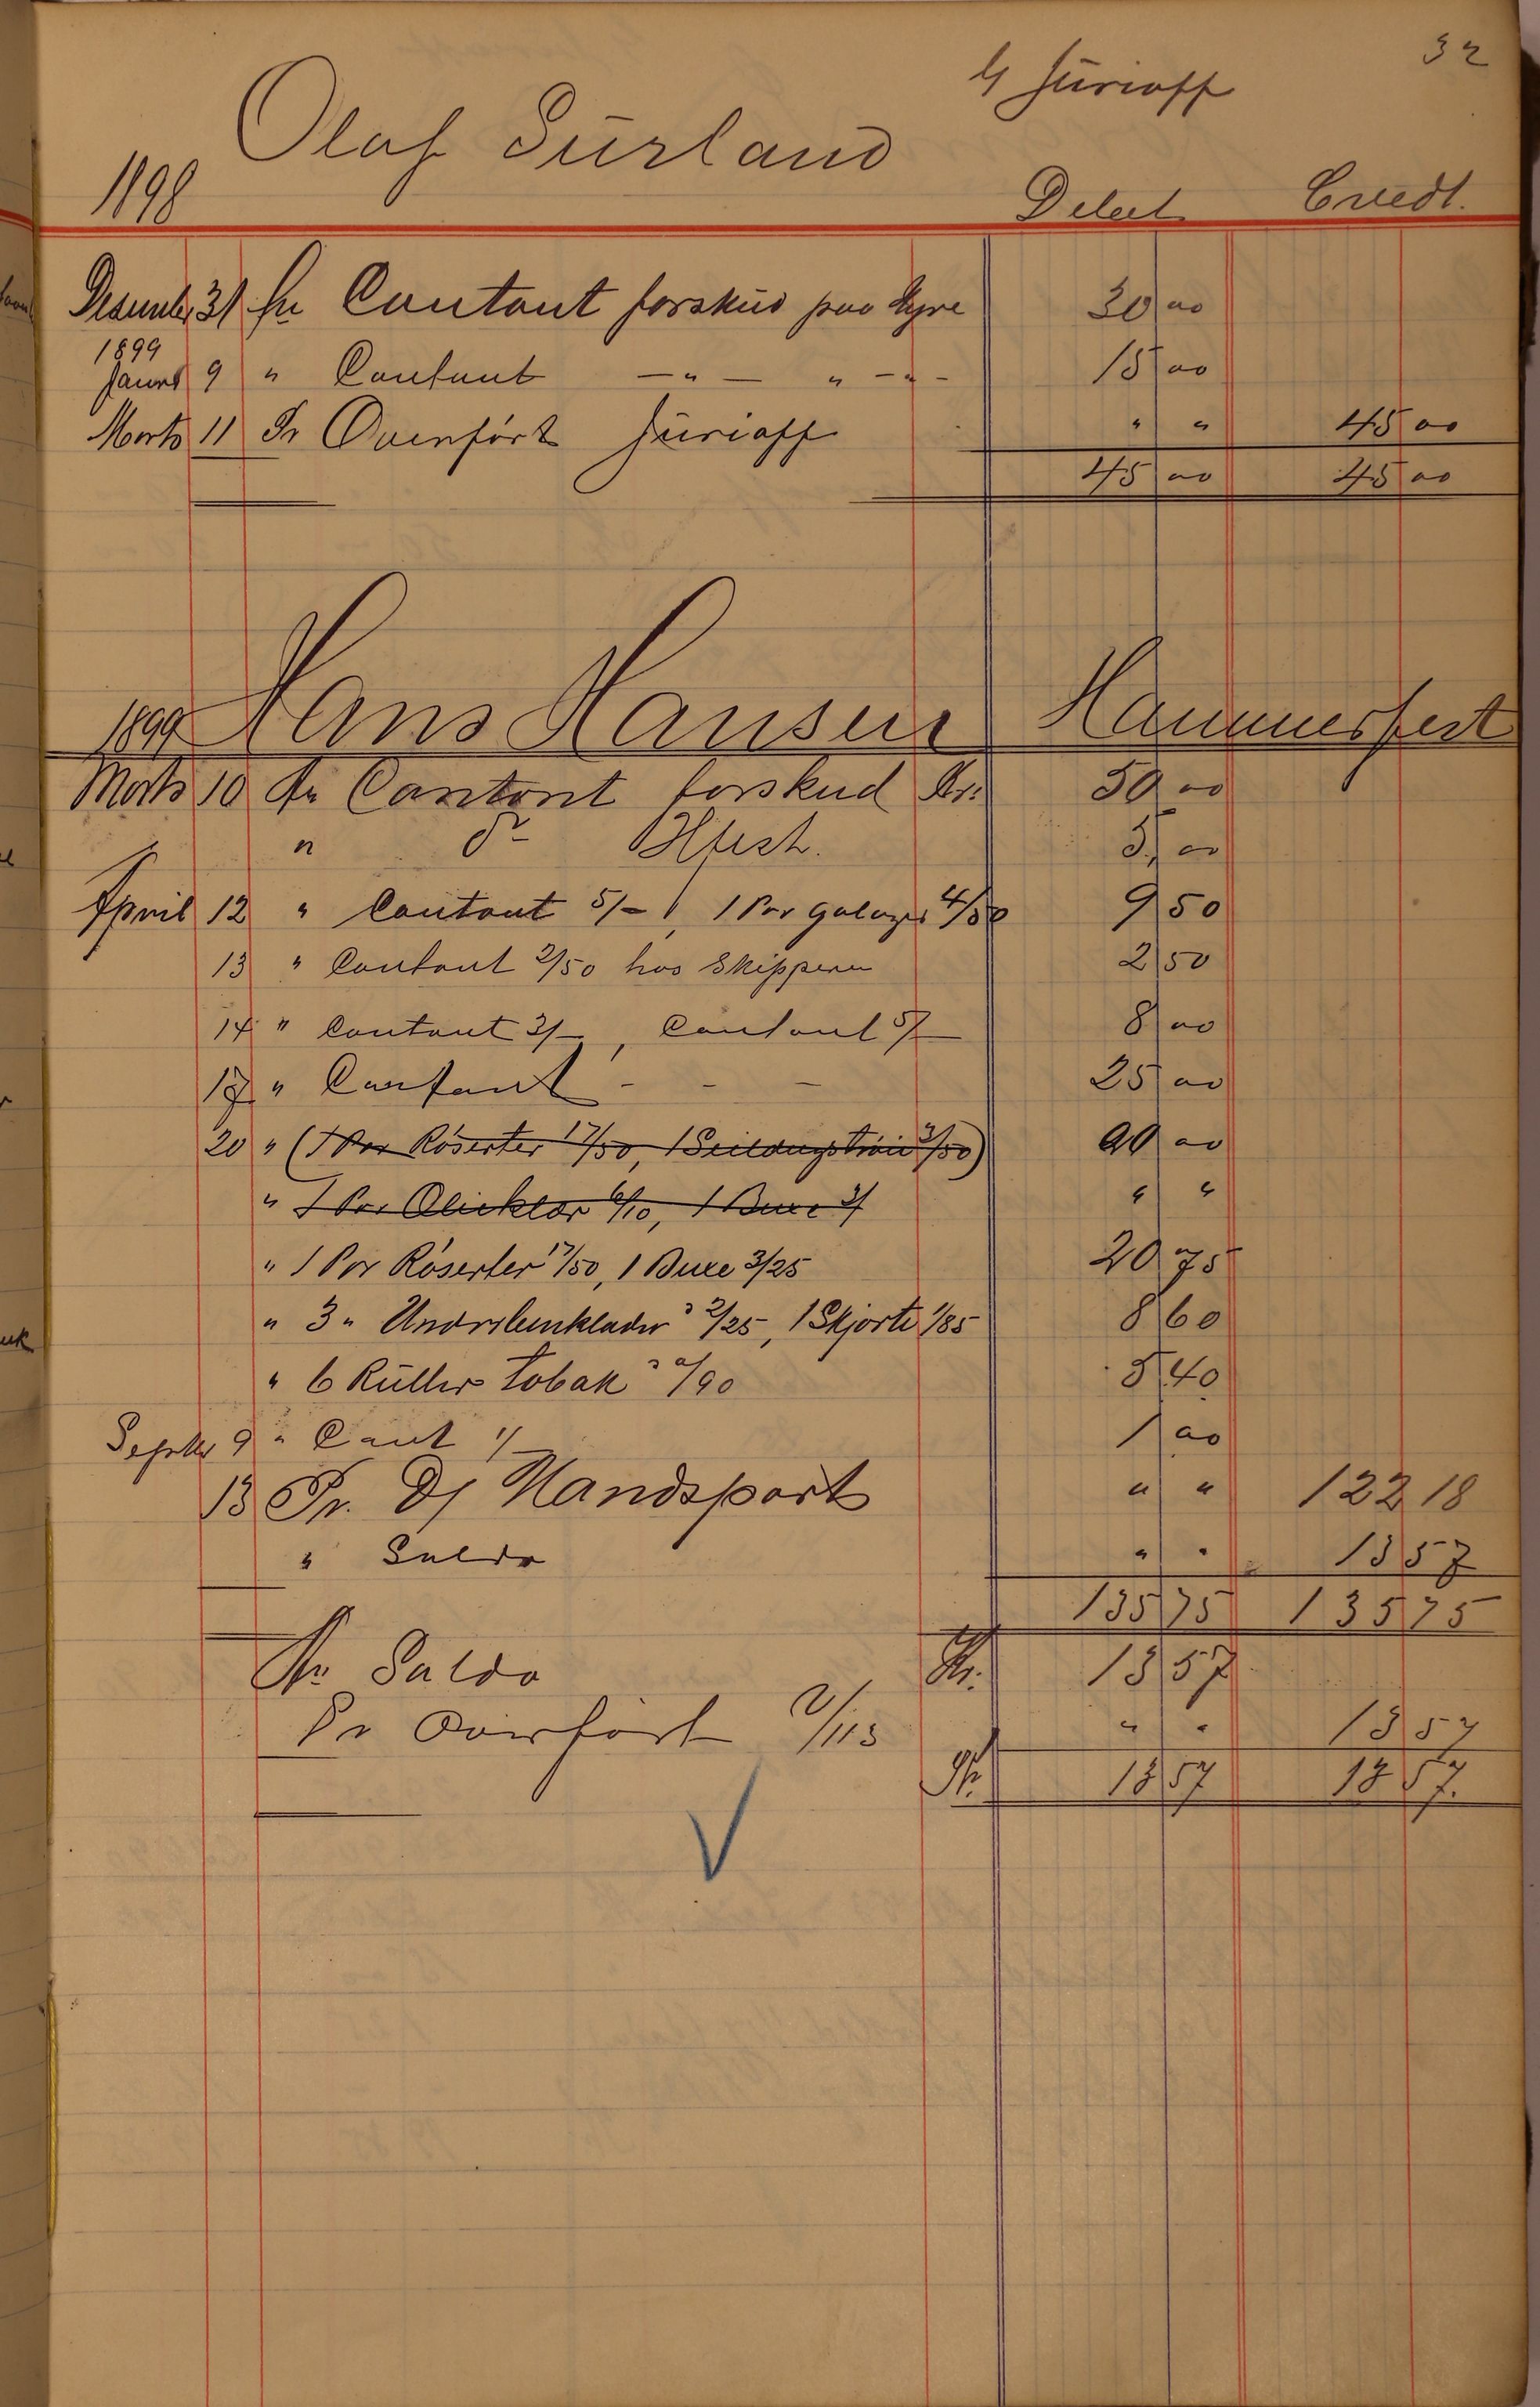 32
Jürioff
Olaf Sürland
1898 Debet Credt.
Desembr 31 An Contant forskud paa Hyre 30 00
1899
Januar 9 " Contant — " — " — " — 15 00
Marts 11 Pr Overført Jürioff " " 45 00
45 00 45 00
1899 Hans Hansen Hammerfest
Marts 10 An Contant forskud Kr: 50 00
" do 5 00
April 12 " Contant 5/-, 1 Par Galoger 4/50 9 50
13 " Contant 2/50 hos Skipperen 2 50
14 " Contant 3/-, Contant 5/- 8 00
17 " Contant - - - 25 00
20 " (1 Par Røserter 17/50, 1 3/50) 00 00
" 1 Par 6/10, 1 Buxe 3/ " "
" 1 Par Røserter 17/50, 1 Buxe 3/25 20 75
" 3 " Underbenklæder a 2/25, 1 Skjorte 1/85 8 60
" 6 Ruller Tobak a 0/90 5 40
Septbr 9 " Cant 1/ 1 00
13 Pr. D/ Handspart " " 122 18
" Saldo " " 13 57
135 75 135 75
An Saldo Kr. 13 57
Pr Overført 2/113 " " 13 57
Kr. 13 57 13 57.